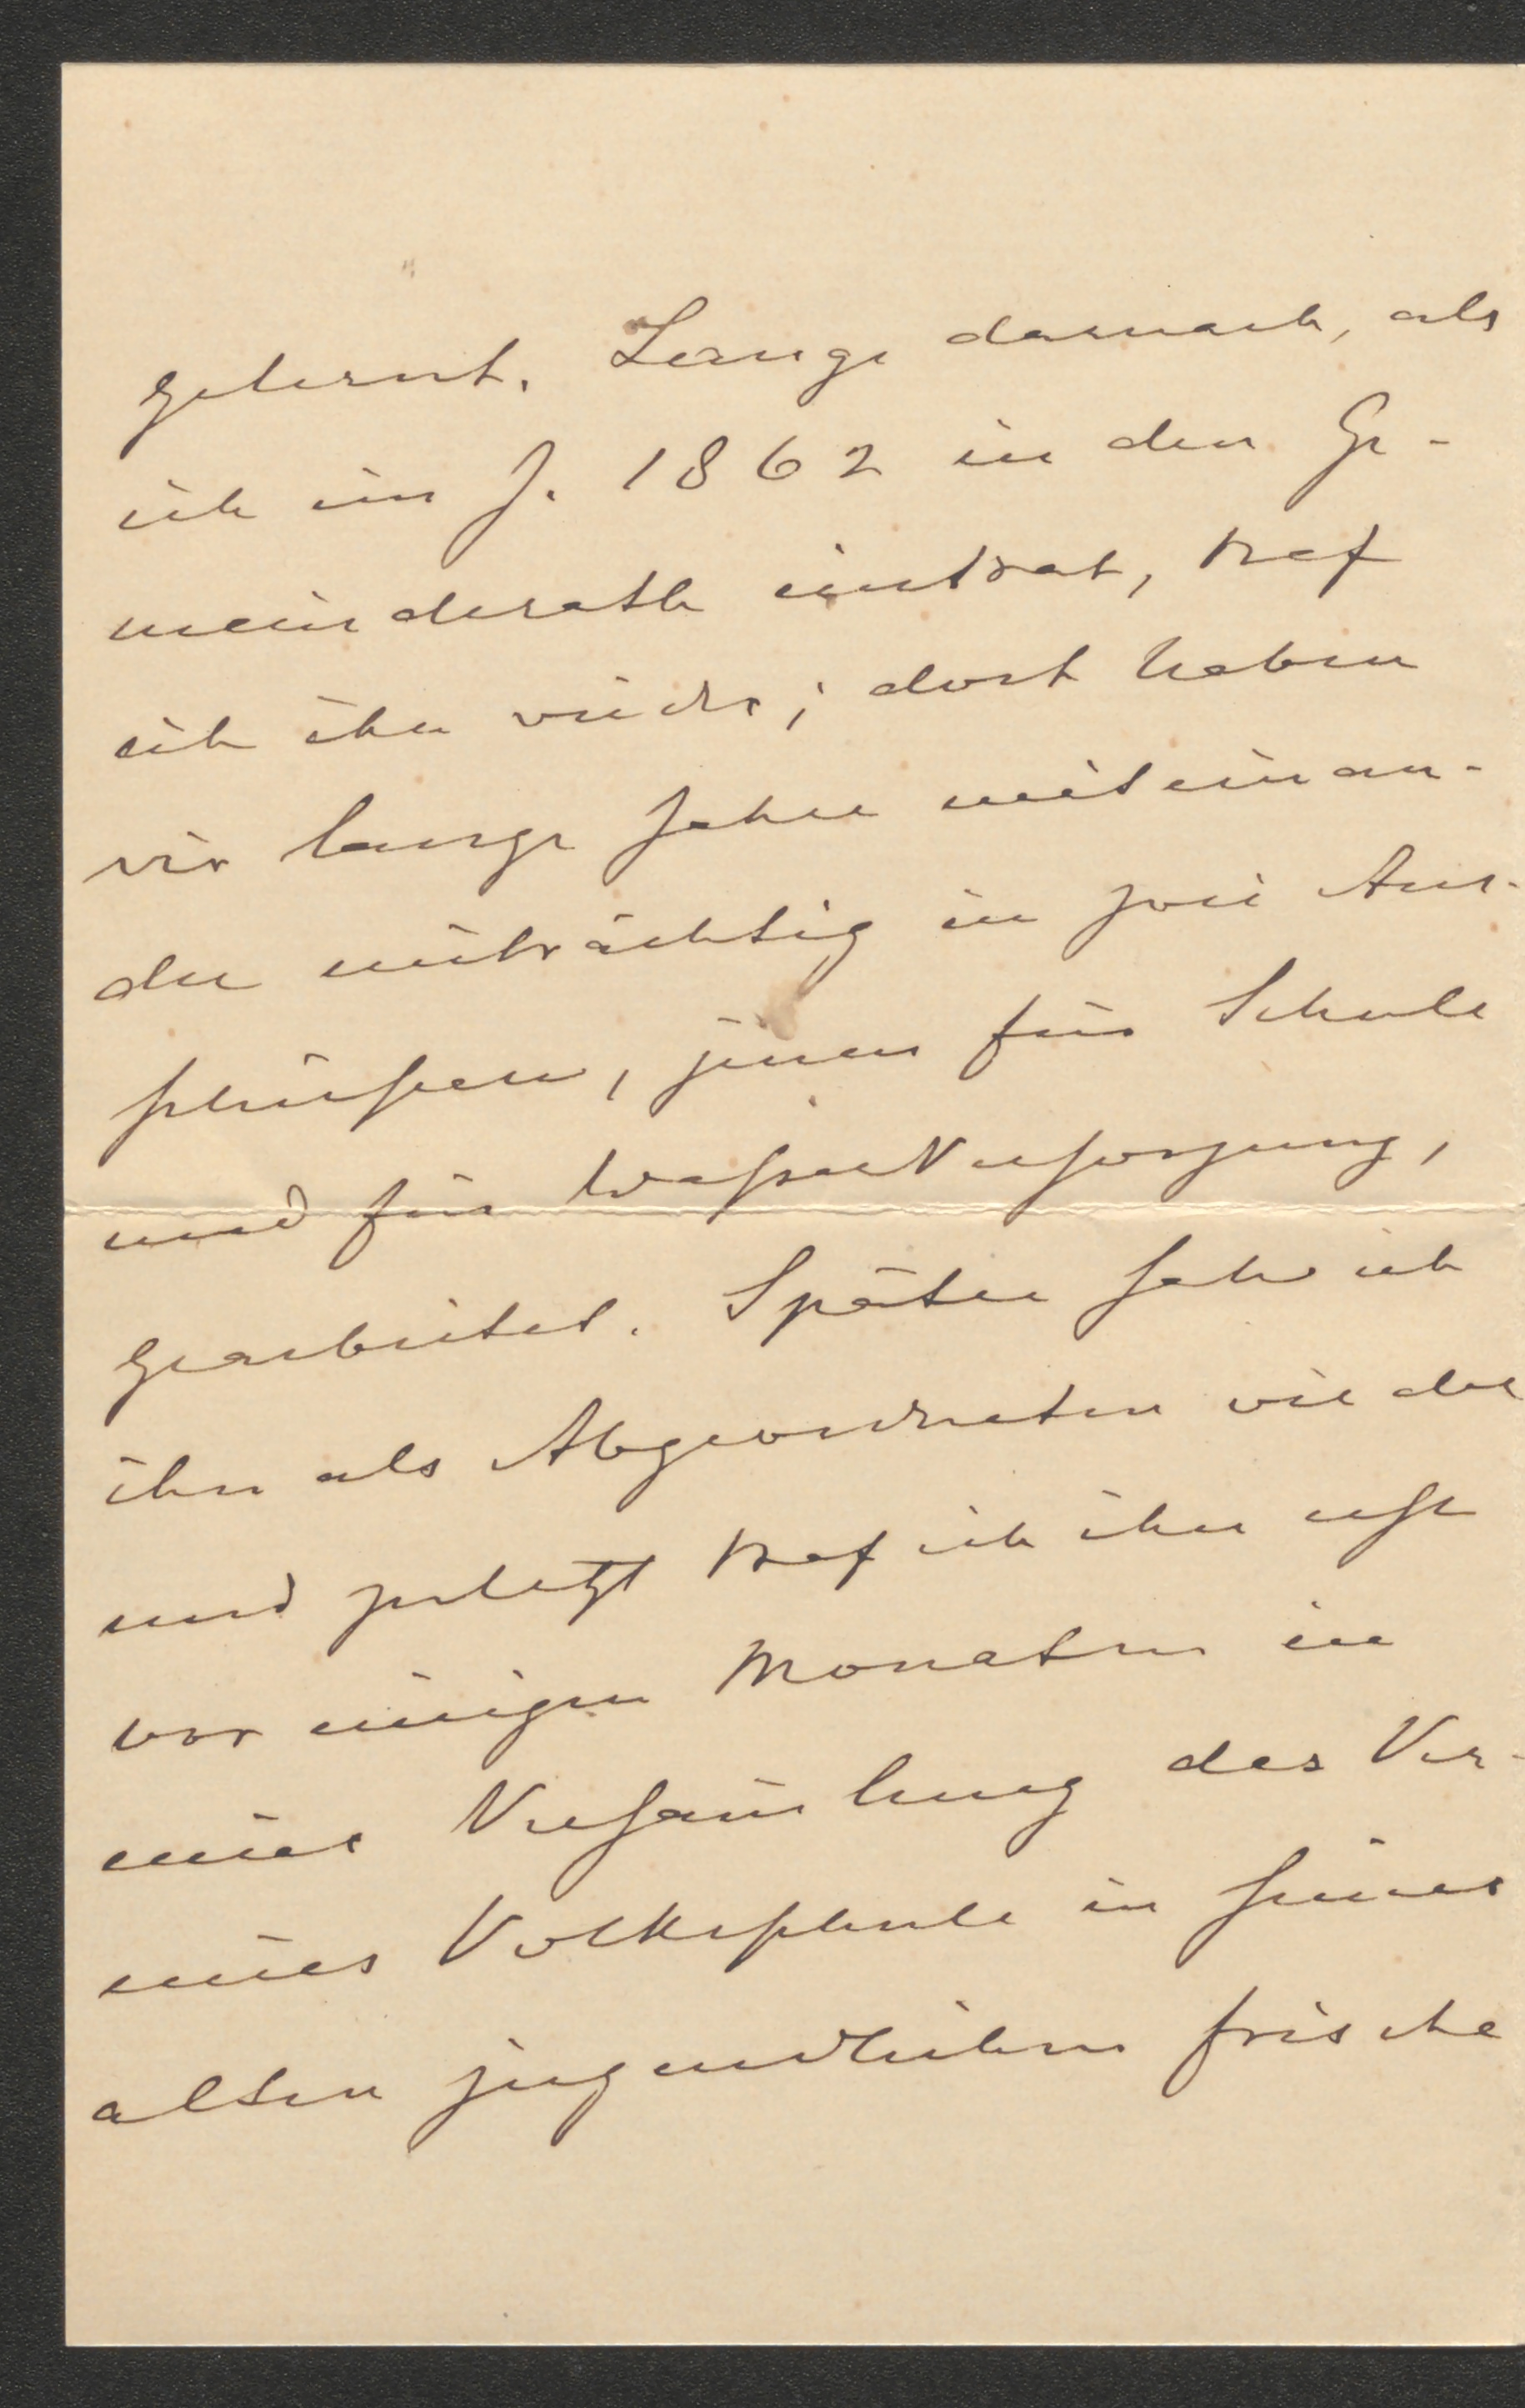 gelernt. Lange darnach, als
ich im J. 1862 in den Ge-
meinderath eintrat, traf
ich ihn wieder; dort haben
wir lange Jahre miteinan-
der einträchtig in zwei Aus-
schüssen, jenen für Schule
und für Wasserversorgung,
gearbeitet. Später sah ich
ihn als Abgeordneten wieder
und zuletzt traf ich ihn erst
vor einigen Monaten in
einer Versam̄lung des Ver-
eines Volksschule in seiner
alten jugendlichen Frische